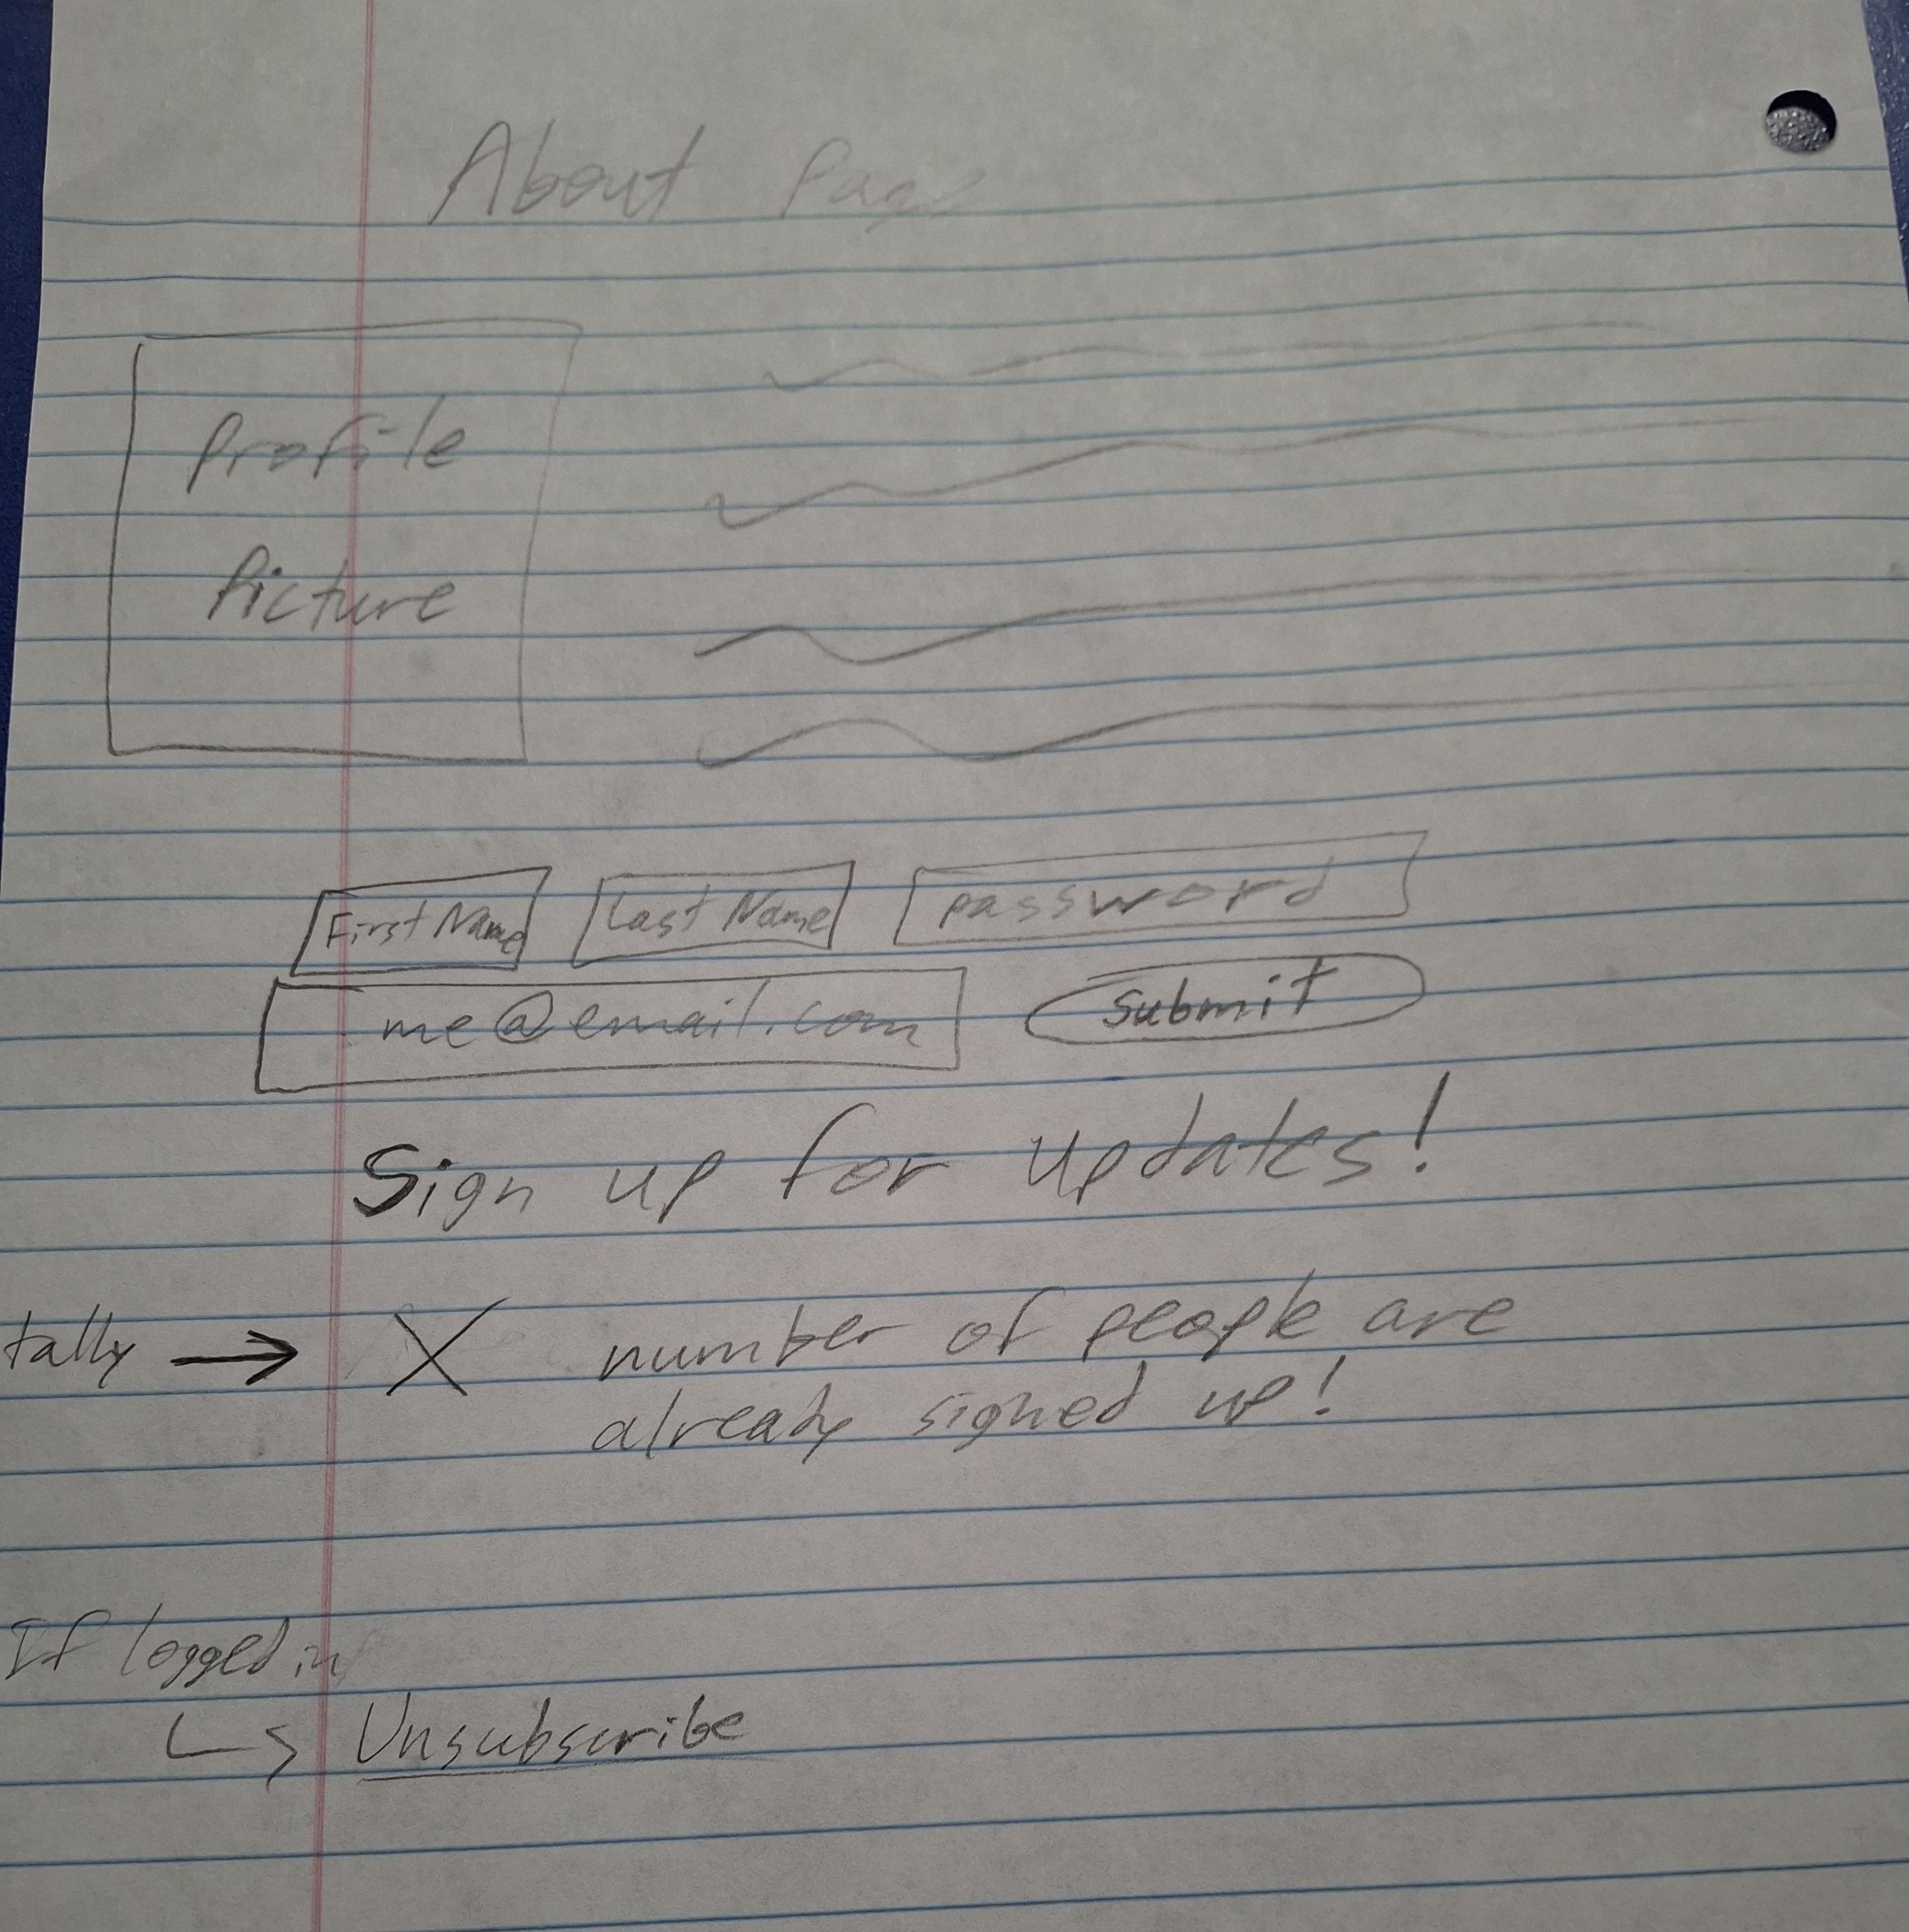 About Page
Profile
Picture
First Name Last Name password
me@email.com Submit
Sign up for updates!
tally → X number of people are
already signed up!
If logged in
↳ Unsubscribe